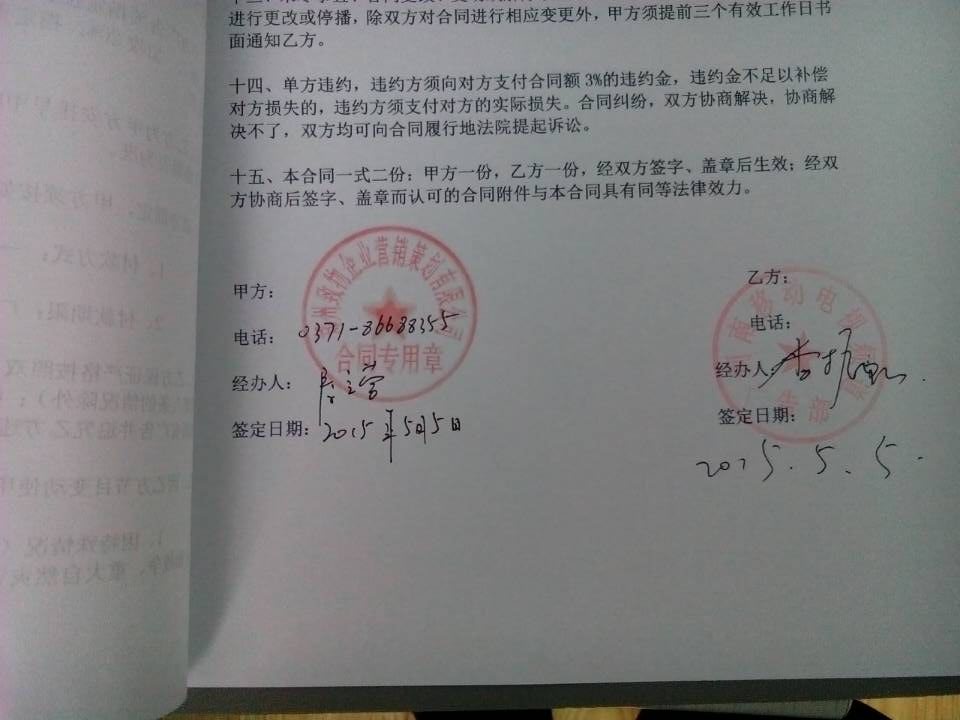 进行更改或停播，除双方对合同进行相应变更外，甲方须提前三个有效工作日书
面通知乙方。
十四、单方违约，违约方须向对方支付合同额 3%的违约金，违约金不足以补偿
对方损失的，违约方须支付对方的实际损失。合同纠纷，双方协商解决，协商解
决不了，双方均可向合同履行地法院提起诉讼。
十五、本合同一式二份：甲方一份，乙方一份，经双方签字、盖章后生效；经双
方协商后签字、盖章而认可的合同附件与本合同具有同等法律效力。
州致物企业营销策划有限公司
合同专用章
甲方：
电话：0371-86688355
经办人：
签定日期：2015年5月5日
南移动电视频道
告部
乙方：
电话：
经办人
签定日期：
2015.5.5.
1、付款方式：一
2、付款期限：